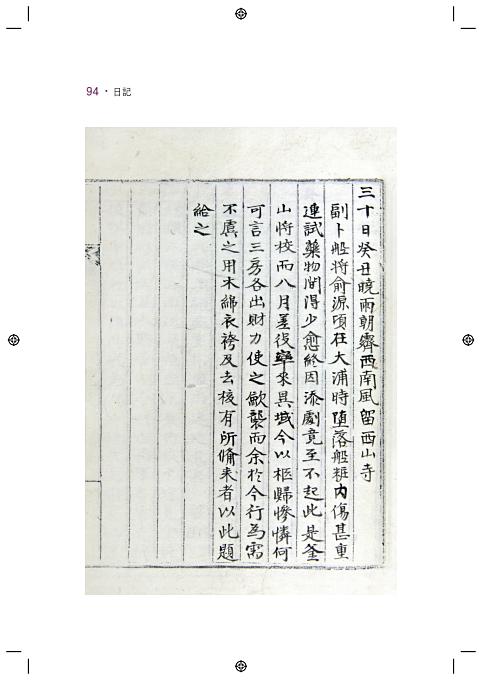 94 · 日記
三十日癸丑曉雨朝霽西南風留西山寺
副卜船將俞源項在大浦時墮落船粧内傷甚重
連試藥物間得少愈終因添劇竟至不起此是釜
山將校而八月差役擧來異域今以柩歸慘憐何
可言三房各出財力使之歛襲而余於今行爲需
不虞之用木綿衣袴及去核有所備来者以此題
給之